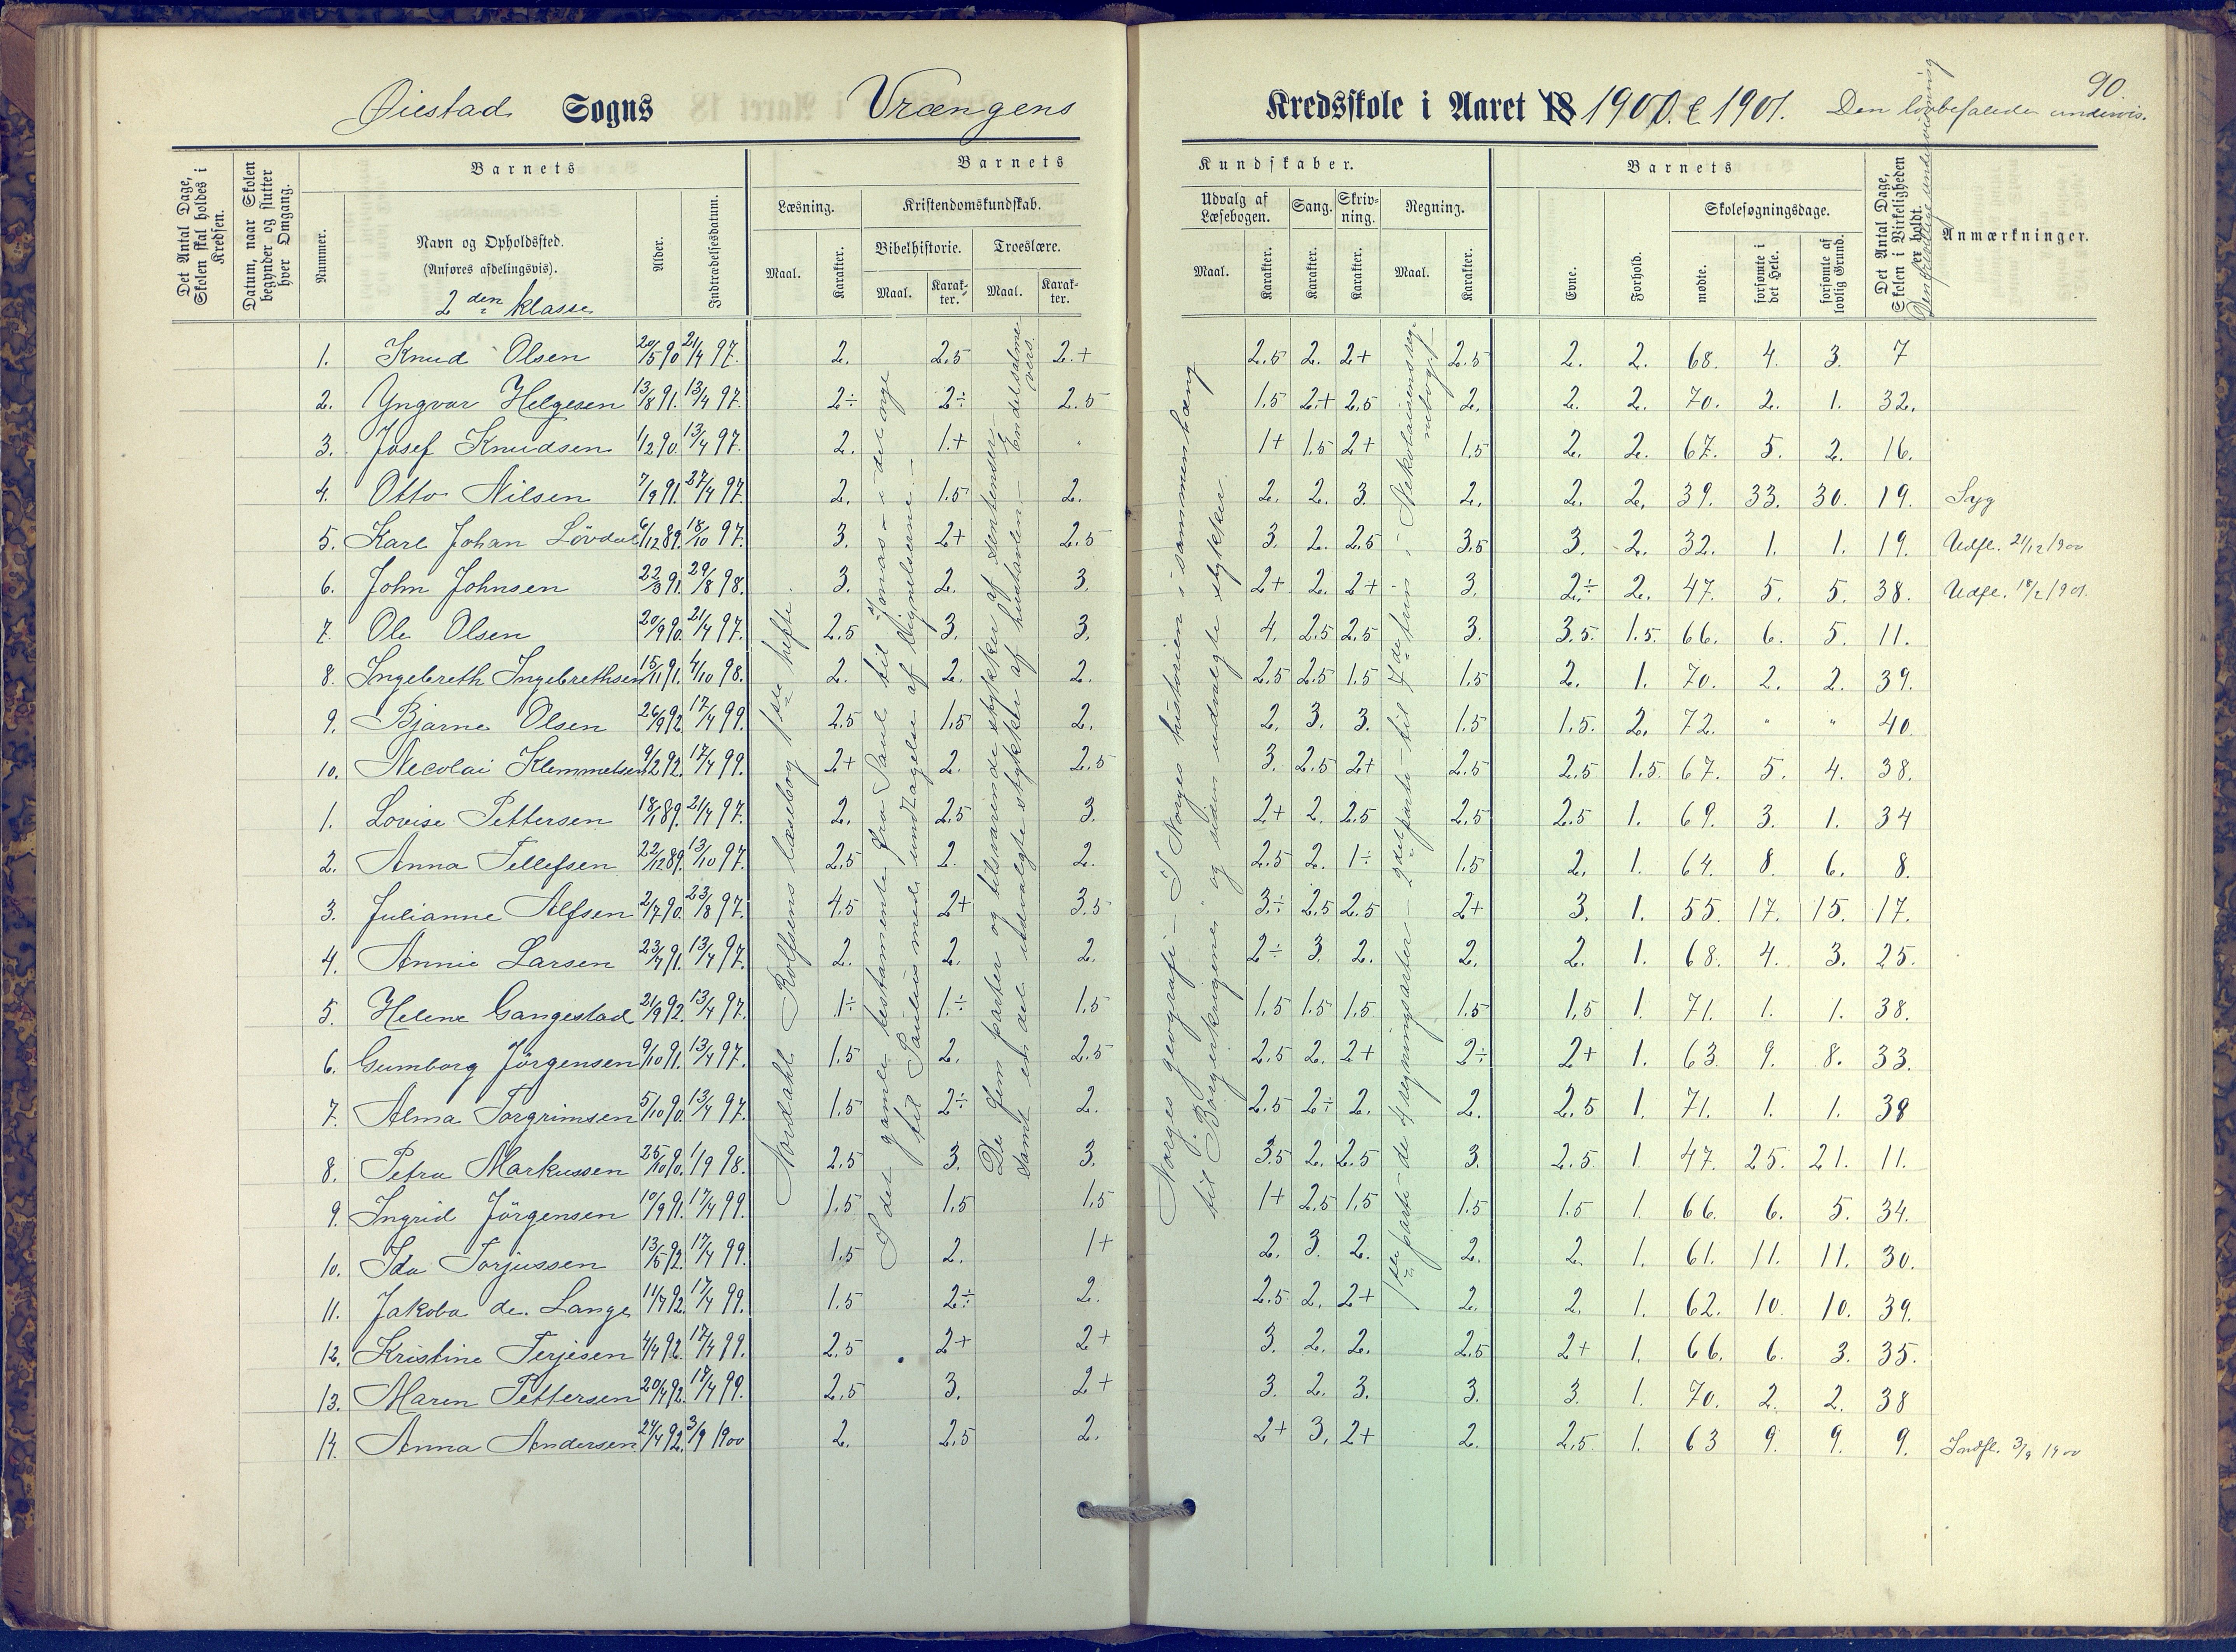 90.
Øiestad Sogns Vrængens Kredsskole i Aaret 18 1900 & 1901. Den lovbefalede undervis.
Det Antal Dage, Skolen skal holdes i Kredsen.
Datum, naar Skolen begynder og slutter hver Omgang.
Barnets
Nummer.
Navn og Opholdssted.
(Anføres afdelingsvis).
2den klasse
Alder.
Indtrædelsesdatum.
Barnets Kundskaber.
Læsning. Maal. Karakter.
Kristendomskundskab.
Bibelhistorie. Maal. Karakter.
Troeslære. Maal. Karakter.
Udvalg af Læsebogen. Maal. Karakter.
Sang. Karakter.
Skrivning. Karakter.
Regning. Maal. Karakter.
Barnets
Evne. Forhold.
Skolesøgningsdage.
mødte. forsømte i det Hele. forsømte af lovlig Grund.
Det Antal Dage, Skolen i Virkeligheden er holdt.
Den frivillige undervisning
Anmærkninger.
1. Knud Olsen 20/5 90 21/4 97. 2. 2.5 2.+ 2.5 2. 2+ 2.5 2. 2. 68. 4. 3. 7
2. Yngvar Helgesen 13/8 91. 13/4 97. 2÷ 2÷ 2.5 1.5 2.+ 2.5 2. 2. 2. 70. 2. 1. 32.
3. Josef Knudsen 1/2 90. 13/4 97. 2. 1.+ " 1+ 1.5 2+ 1.5 2. 2. 67. 5. 2. 16.
4. Otto Nilsen 7/9 91. 27/4 97. 2. 1.5 2. 2. 2. 3. 2. 2. 2. 39. 33. 30. 19. Syg
5. Karl Johan Lövdal 6/12 89. 18/10 97. 3. 2+ 2.5 3. 2. 2.5 3.5 3. 2. 32. 1. 1. 19. Udfl. 21/12 1900
6. John Johnsen 22/3 91. 29/8 98. 3. 2. 3. 2+ 2. 2+ 3. 2÷ 2. 47. 5. 5. 38. Udfl. 18/2 1901.
7. Ole Olsen 20/9 90. 21/4 97. 2.5 3. 3. 4. 2.5 2.5 3. 3.5. 1.5. 66. 6. 5. 11.
8. Ingebreth Ingebrethsen 15/11 91. 4/10 98. 2. 2. 2. 2.5 2.5 1.5 1.5 2. 1. 70. 2. 2. 39.
9. Bjarne Olsen 26/9 92. 17/4 99. 2.5 1.5 2. 2. 3. 3. 1.5 1.5. 2. 72. " " 40.
10. Necolai Klemmetsen 9/2 92. 17/4 99. 2+ 2. 2.5 3. 2.5 2+ 2.5 2.5 1.5. 67. 5. 4. 38.
1. Lovise Pettersen 18/1 89. 21/4 97. 2. 2.5 3. 2+ 2. 2.5 2.5 2.5 1. 69. 3. 1. 34
2. Anna Tellefsen 22/12 89. 13/10 97. 2.5 2. 2. 2.5 2. 1÷ 1.5 2. 1. 64. 8. 6. 8.
3. Julianne Alfsen 2/7 90. 23/8 97. 4.5 2+ 3.5 3.÷ 2.5 2.5 2+ 3. 1. 55. 17. 15. 17.
4. Annie Larsen 23/7 91. 13/4 97. 2. 2. 2. 2÷ 3. 2. 2. 2. 1. 68. 4. 3. 25.
5. Helene Gangestad 21/9 92. 13/4 97. 1÷ 1.÷ 1.5 1.5 1.5 1.5. 1.5 1.5 1. 71. 1. 1. 38.
6. Gumborg Jörgensen 9/10 91. 13/4 97. 1.5 2. 2.5 2.5 2. 2+ 2÷ 2+ 1. 63. 9. 8. 33.
7. Alma Torgrimsen 5/10 90. 13/4 97. 1.5 2÷ 2. 2.5 2÷ 2. 2. 2.5 1. 71. 1. 1. 38
8. Petra Markussen 25/10 90. 1/9 98. 2.5 3. 3. 3.5 2. 2.5 3. 2.5 1. 47. 25. 21. 11.
9. Ingrid Jörgensen 10/9 91. 17/4 99. 1.5 1.5 1.5 1+ 2.5 1.5 1.5 1.5 1. 66. 6. 5. 34.
10. Ida Torjussen 13/5 92. 17/4 99. 1.5 2. 1+ 2. 3. 2. 2. 2. 1. 61. 11. 11. 30.
11. Jakoba de. Lange 11/7 92. 17/4 99. 1.5 2÷ 2. 2.5 2. 2+ 2. 2. 1. 62. 10. 10. 39.
12. Kristine Terjesen 4/4 92. 17/4 99. 2.5 2+ 2+ 3. 2. 2. 2.5 2+ 1. 66. 6. 3. 35.
13. Maren Pettersen 20/4 92. 17/4 99. 2.5 3. 2+ 3. 2. 3. 3. 3. 1. 70. 2. 2. 38
14. Anna Andersen 24/4 92. 3/9 1900 2. 2.5 2. 2+ 3. 2+ 2. 2.5. 1. 63 9. 9. 9. Indfl. 3/9 1900
Nordahl Rolfsens læsebog 1ste hefte.
I det gamle testamente fra Saul til Jonas – i det nye
til Paulus med undtagelse af lignelserne. –
De fem parter og tilsvarende stykker af sentensen
samt en del udvalgte stykker af hustavlen. – En del salmevers.
Norges geografi – I Norges historien i sammenhæng
til Borgerkrigene, og siden udvalgte stykker.
1ste parti – de 4 regningsarter – 2det parti – til 7de trin i Nikolaisens regnebog.